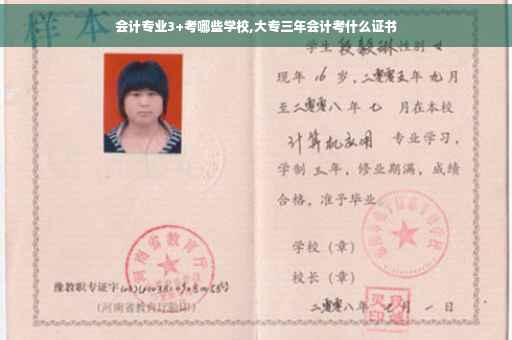 会计专业3+考哪些学校,大专三年会计考什么证书
样本
学生段毅琳性别女
现年16岁，二零零五年九月
至二零零八年七月在本校
计算机应用 专业学习，
学制三年，修业期满，成绩
合格，准予毕业
学校（章）
校长（章）
二零零八年 月一日
河南省教育厅
豫教职专证字
(河南省教育厅验印)